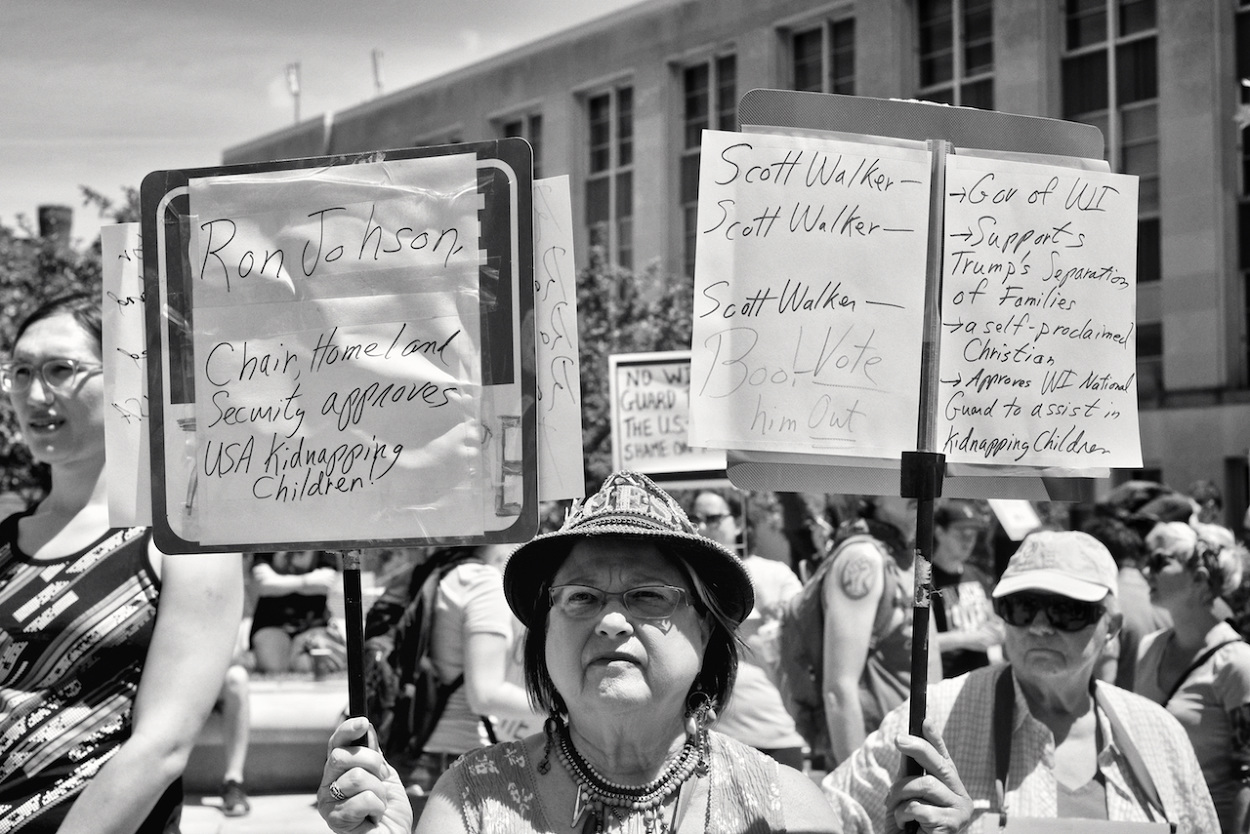 Ron Johson,
Chair, Homeland
Security approves
USA Kidnapping
Children!
NO WI
GUARD T
THE US-
SHAME ON
Scott Walker—
Scott Walker—
Scott Walker—
Boo! Vote
him Out
→Gov of WI
→Supports
Trump's Separation
of Families
→a self-proclaimed
Christian
→Approves WI National
Guard to assist in
kidnapping Children